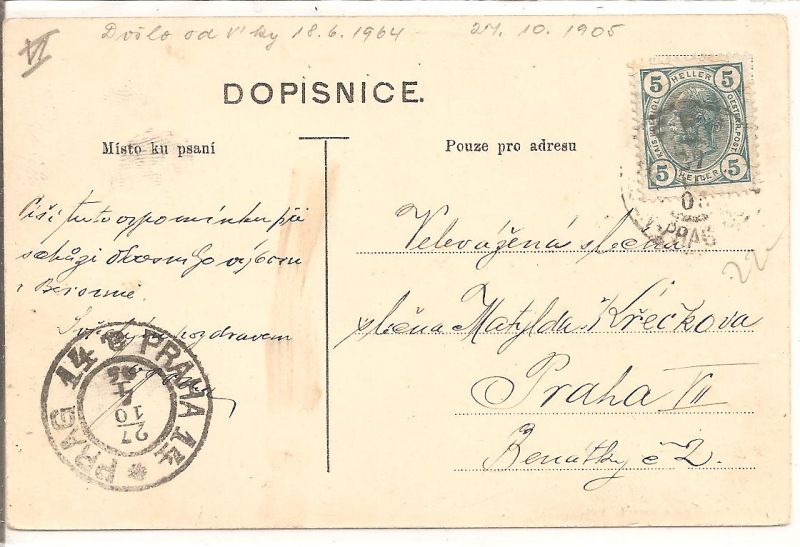 VI
Došlo od 18.6.1964 27. 10. 1905
DOPISNICE.
Místo ku psaní
Pouze pro adresu
5 HELLER 5
KAIS. KÖNIGL. OESTERR. POST
5 HELLER 5
PRAG
22
Píši tuto vzpomínku při
schůzi
v Berouně.
pozdravem
Velevážená slečna
slečna Matylda Křečkova
Praha VII
Benátky č 2.
PRAHA 14 * PRAG 14
27
10
05